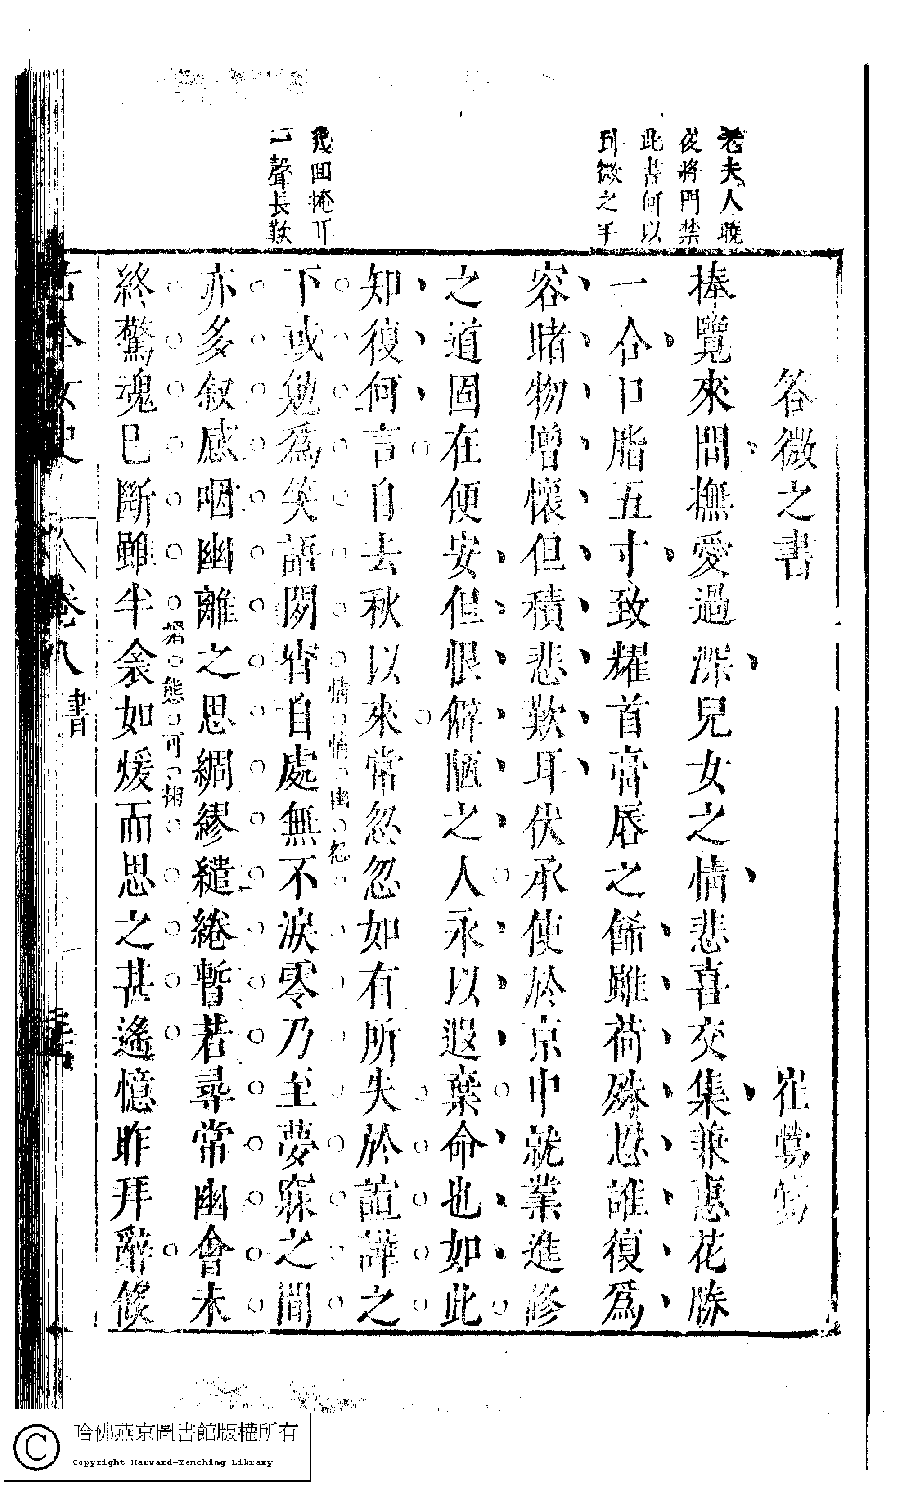 老夫人晚
從將門禁
此書何以
到微之手
幾回掩耳
一聲長歎
答微之書 崔鶯鶯
捧覽來問撫愛過深兒女之情悲喜交集兼惠花勝
一合口脂五寸致耀首膏唇之餙雖荷殊恩誰復爲
容睹物增懷但積悲歎耳伏承使於京中就業進修
之道固在便安但恨僻陋之人永以遐棄命也如此
知復何言自去秋以來常忽忽如有所失於諠譁之
下或勉爲笑語閑宵自處無不淚零乃至夢寐之間
情情幽怨
亦多叙感咽幽離之思綢繆繾綣暫若尋常幽會未
媚態可掬
終驚魂已斷雖半衾如煖而思之甚遙憶昨拜辭倐
古今女史 卷八 書
哈佛燕京圖書館版權所有
Copyright Harvard-Yenching Library